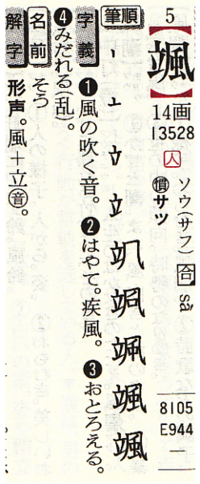 5
【颯】
14画
13528
人
ソウ(サフ)合 sà
慣サツ
8105
E944
一
筆順
字義 ❶風の吹く音。❷はやて。疾風。❸おとろえる。
❹みだれる(乱)。
名前 そう
解字 形声。風+立音。